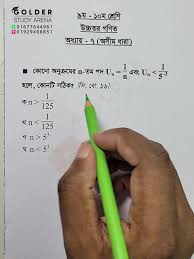 GOLDER
STUDY ARENA
01677644961
01929408851
৯ম - ১০ম শ্রেণি
উচ্চতর গণিত
অধ্যায় - ৭ (অসীম ধারা)
■ কোনো অনুক্রমের n-তম পদ Uₙ = 1/n এবং Uₙ < 1/5⁻³
হলে, কোনটি সঠিক?
ক n > 1/125
খ n < 1/125
গ n > 5³
ঘ n < 5³